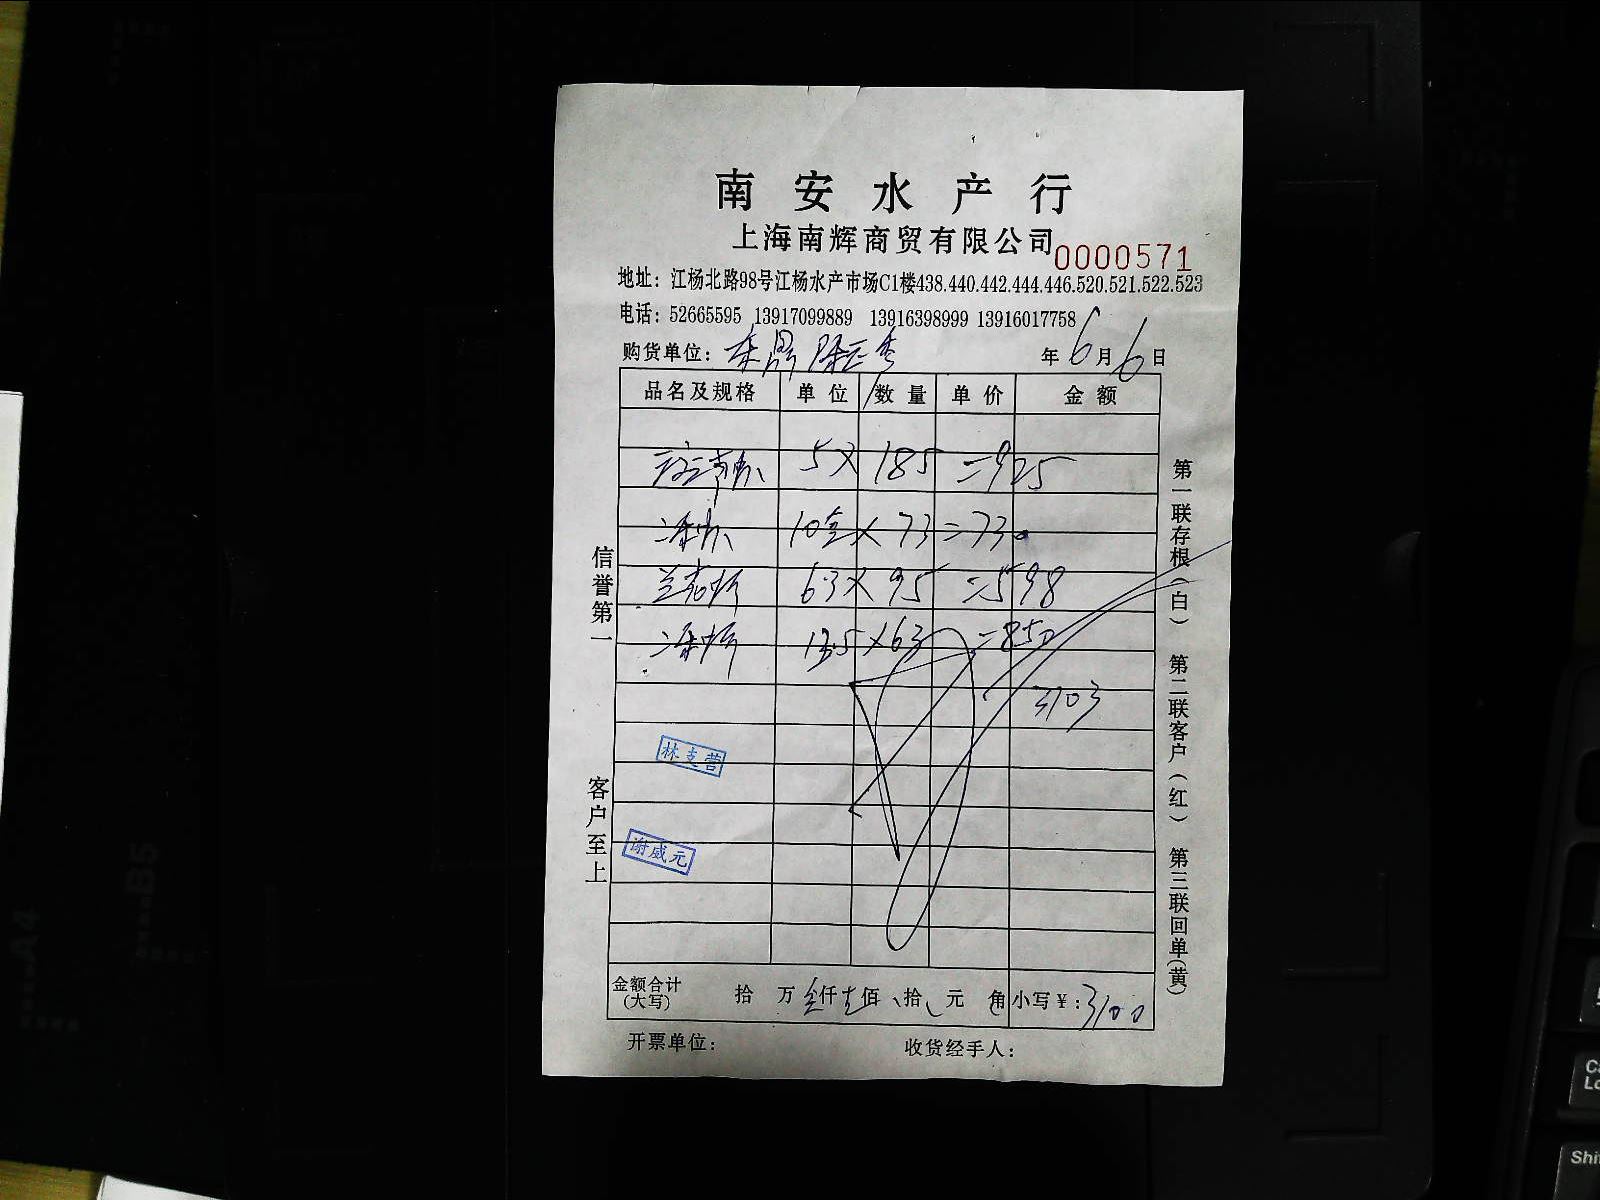 南安水产行
上海南辉商贸有限公司
0000571
地址：江杨北路98号江杨水产市场C1楼438.440.442.444.446.520.521.522.523
电话：52665595 13917099889 13916398999 13916017758
购货单位：
年6月6日
品名及规格 单位 数量 单价 金额
5×185=925
10×73=730
63×95=598
13.5×63=850
3103
林支营
谢威元
金额合计(大写) 拾 万 仟 佰 拾 元 角 小写￥：3100
开票单位： 收货经手人：
信誉第一
客户至上
第一联存根（白） 第二联客户（红） 第三联回单（黄）
A4
B5